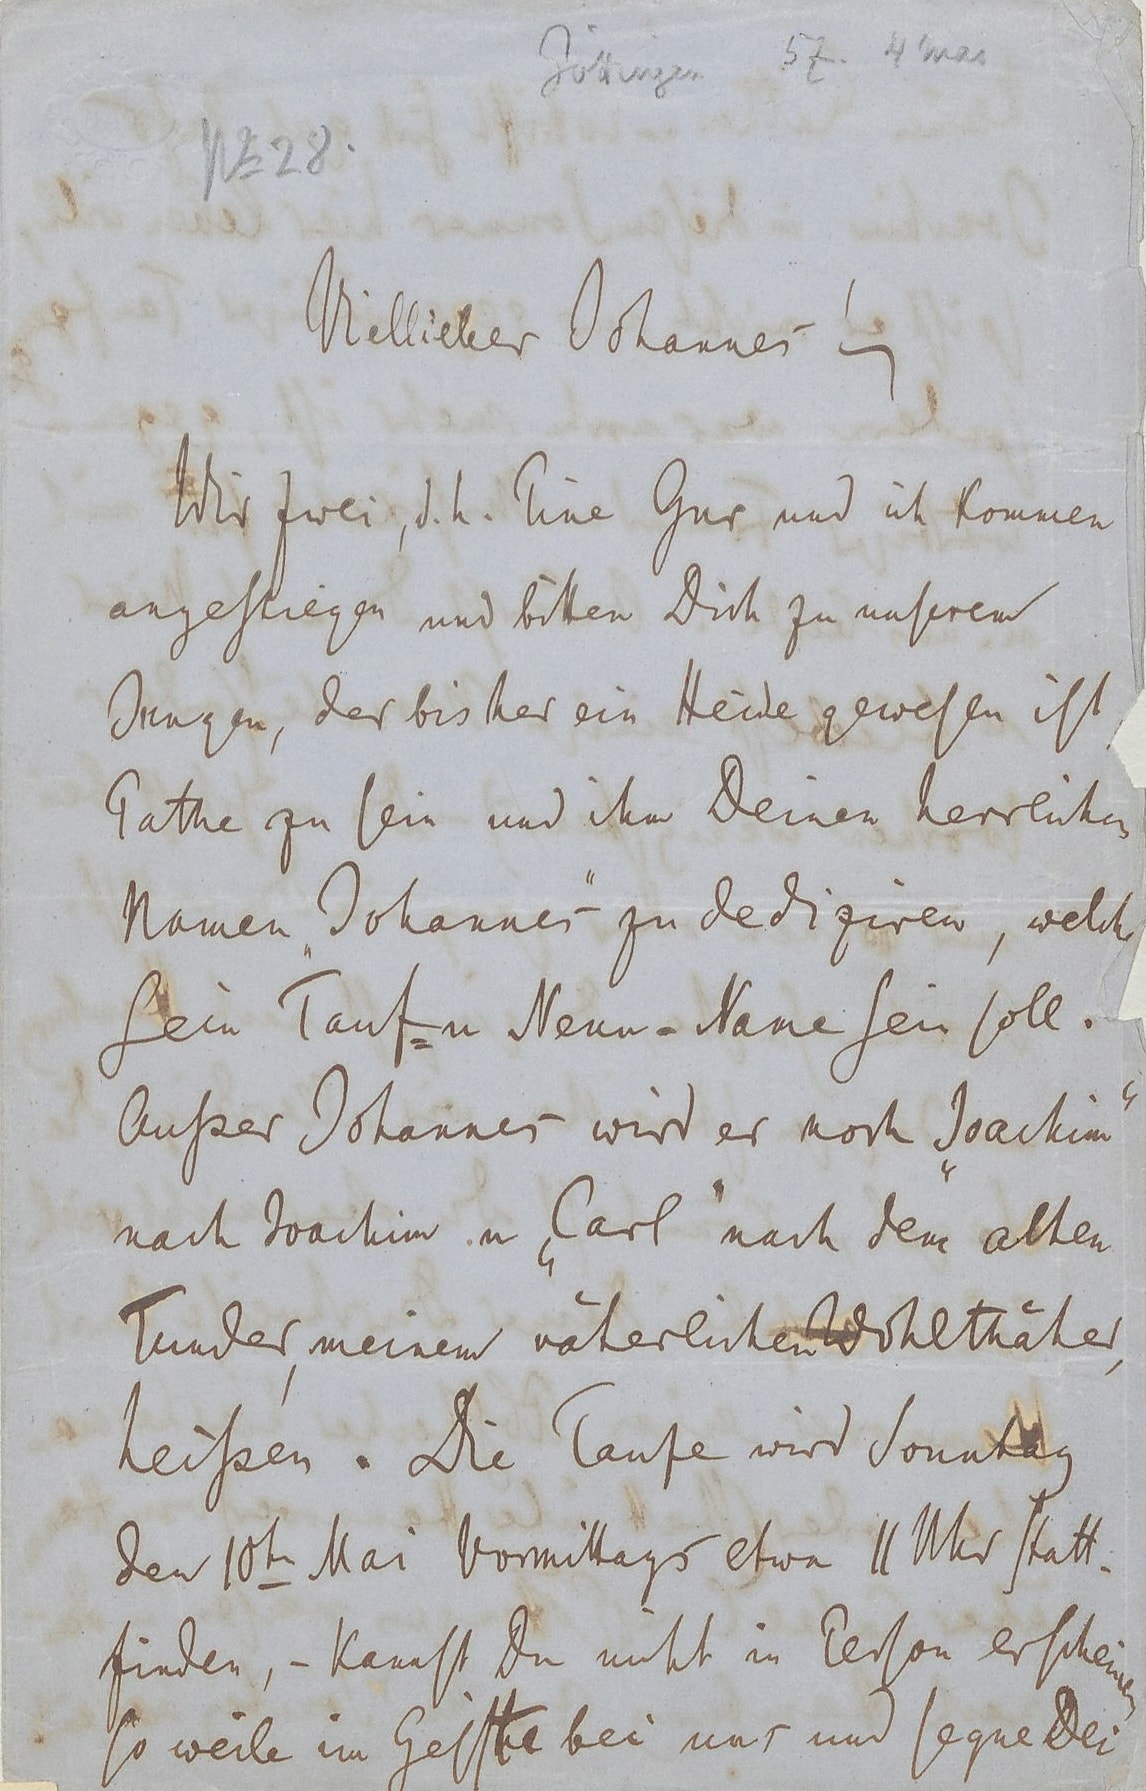 Göttingen 57. 4 Mai
No 28.
Viellieber Johannes!
Wir zwei, d. h. Pine Gur und ich kommen
angestiegen und bitten Dich zu unserem
Jungen, der bisher ein Heide gewesen ist,
Pathe zu sein und ihm Deinen herrlichen
Namen „Johannes" zu dediziren, welch
sein Tauf= u Nenn-Name sein soll.
Außer Johannes wird er noch „Joachim"
nach Joachim u „Carl" nach dem alten
Tunder, meinem väterlichen Wohlthäter,
heißen. Die Taufe wird Sonntag
den 10tn Mai Vormittags etwa 11 Uhr statt-
finden, – kannst Du nicht in Person erscheinen
so weile im Geiste bei uns und segne Dei